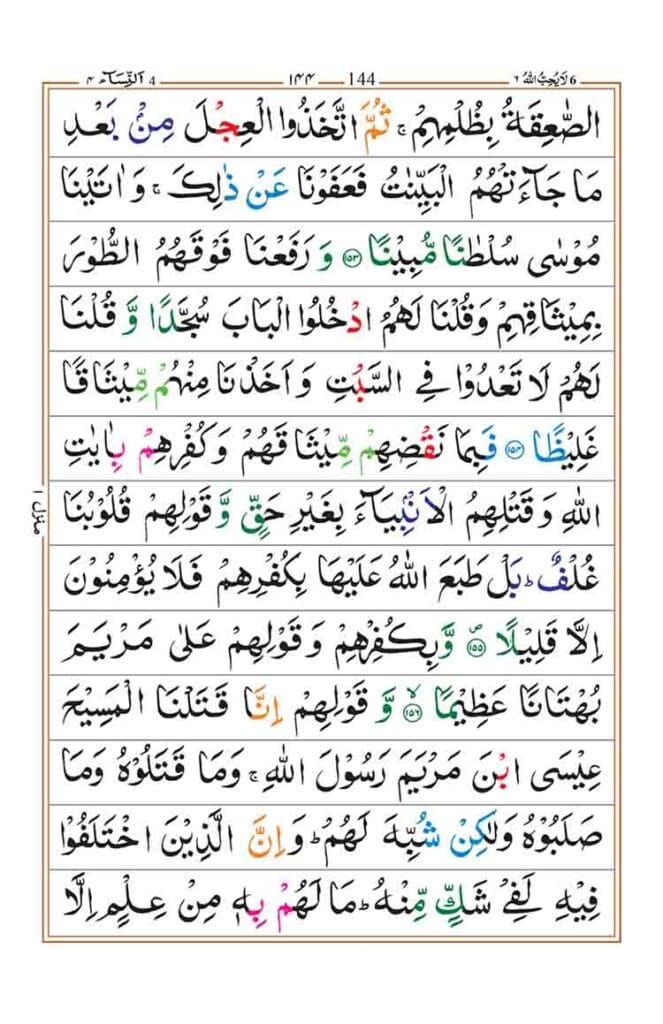 6 لَا يُحِبُّ اللهُ ٦ 144 ١٤٤ 4 اَلنِّسَآء ٤
الصّٰعِقَةُ بِظُلْمِهِمْ ۚ ثُمَّ اتَّخَذُوا الْعِجْلَ مِنْۢ بَعْدِ
مَا جَآءَتْهُمُ الْبَيِّنٰتُ فَعَفَوْنَا عَنْ ذٰلِكَ ۚ وَاٰتَيْنَا
مُوْسٰى سُلْطٰنًا مُّبِيْنًا ﴿۱۵۳﴾ وَ رَفَعْنَا فَوْقَهُمُ الطُّوْرَ
بِمِيْثَاقِهِمْ وَقُلْنَا لَهُمُ ادْخُلُوا الْبَابَ سُجَّدًا وَّ قُلْنَا
لَهُمْ لَا تَعْدُوْا فِي السَّبْتِ وَاَخَذْنَا مِنْهُمْ مِّيْثَاقًا
غَلِيْظًا ﴿۱۵۴﴾ فَبِمَا نَقْضِهِمْ مِّيْثَاقَهُمْ وَكُفْرِهِمْ بِاٰيٰتِ
اللهِ وَقَتْلِهِمُ الْاَنْۢبِيَآءَ بِغَيْرِ حَقٍّ وَّ قَوْلِهِمْ قُلُوْبُنَا
غُلْفٌ ؕ بَلْ طَبَعَ اللهُ عَلَيْهَا بِكُفْرِهِمْ فَلَا يُؤْمِنُوْنَ
اِلَّا قَلِيْلًا ﴿۱۵۵﴾ۖ وَّبِكُفْرِهِمْ وَقَوْلِهِمْ عَلٰى مَرْيَمَ
بُهْتَانًا عَظِيْمًا ﴿۱۵۶﴾ۙ وَّ قَوْلِهِمْ اِنَّا قَتَلْنَا الْمَسِيْحَ
عِيْسَى ابْنَ مَرْيَمَ رَسُوْلَ اللهِ ۚ وَمَا قَتَلُوْهُ وَمَا
صَلَبُوْهُ وَلٰكِنْ شُبِّهَ لَهُمْ ؕ وَاِنَّ الَّذِيْنَ اخْتَلَفُوْا
فِيْهِ لَفِيْ شَكٍّ مِّنْهُ ؕ مَا لَهُمْ بِهٖ مِنْ عِلْمٍ اِلَّا
منزل ١